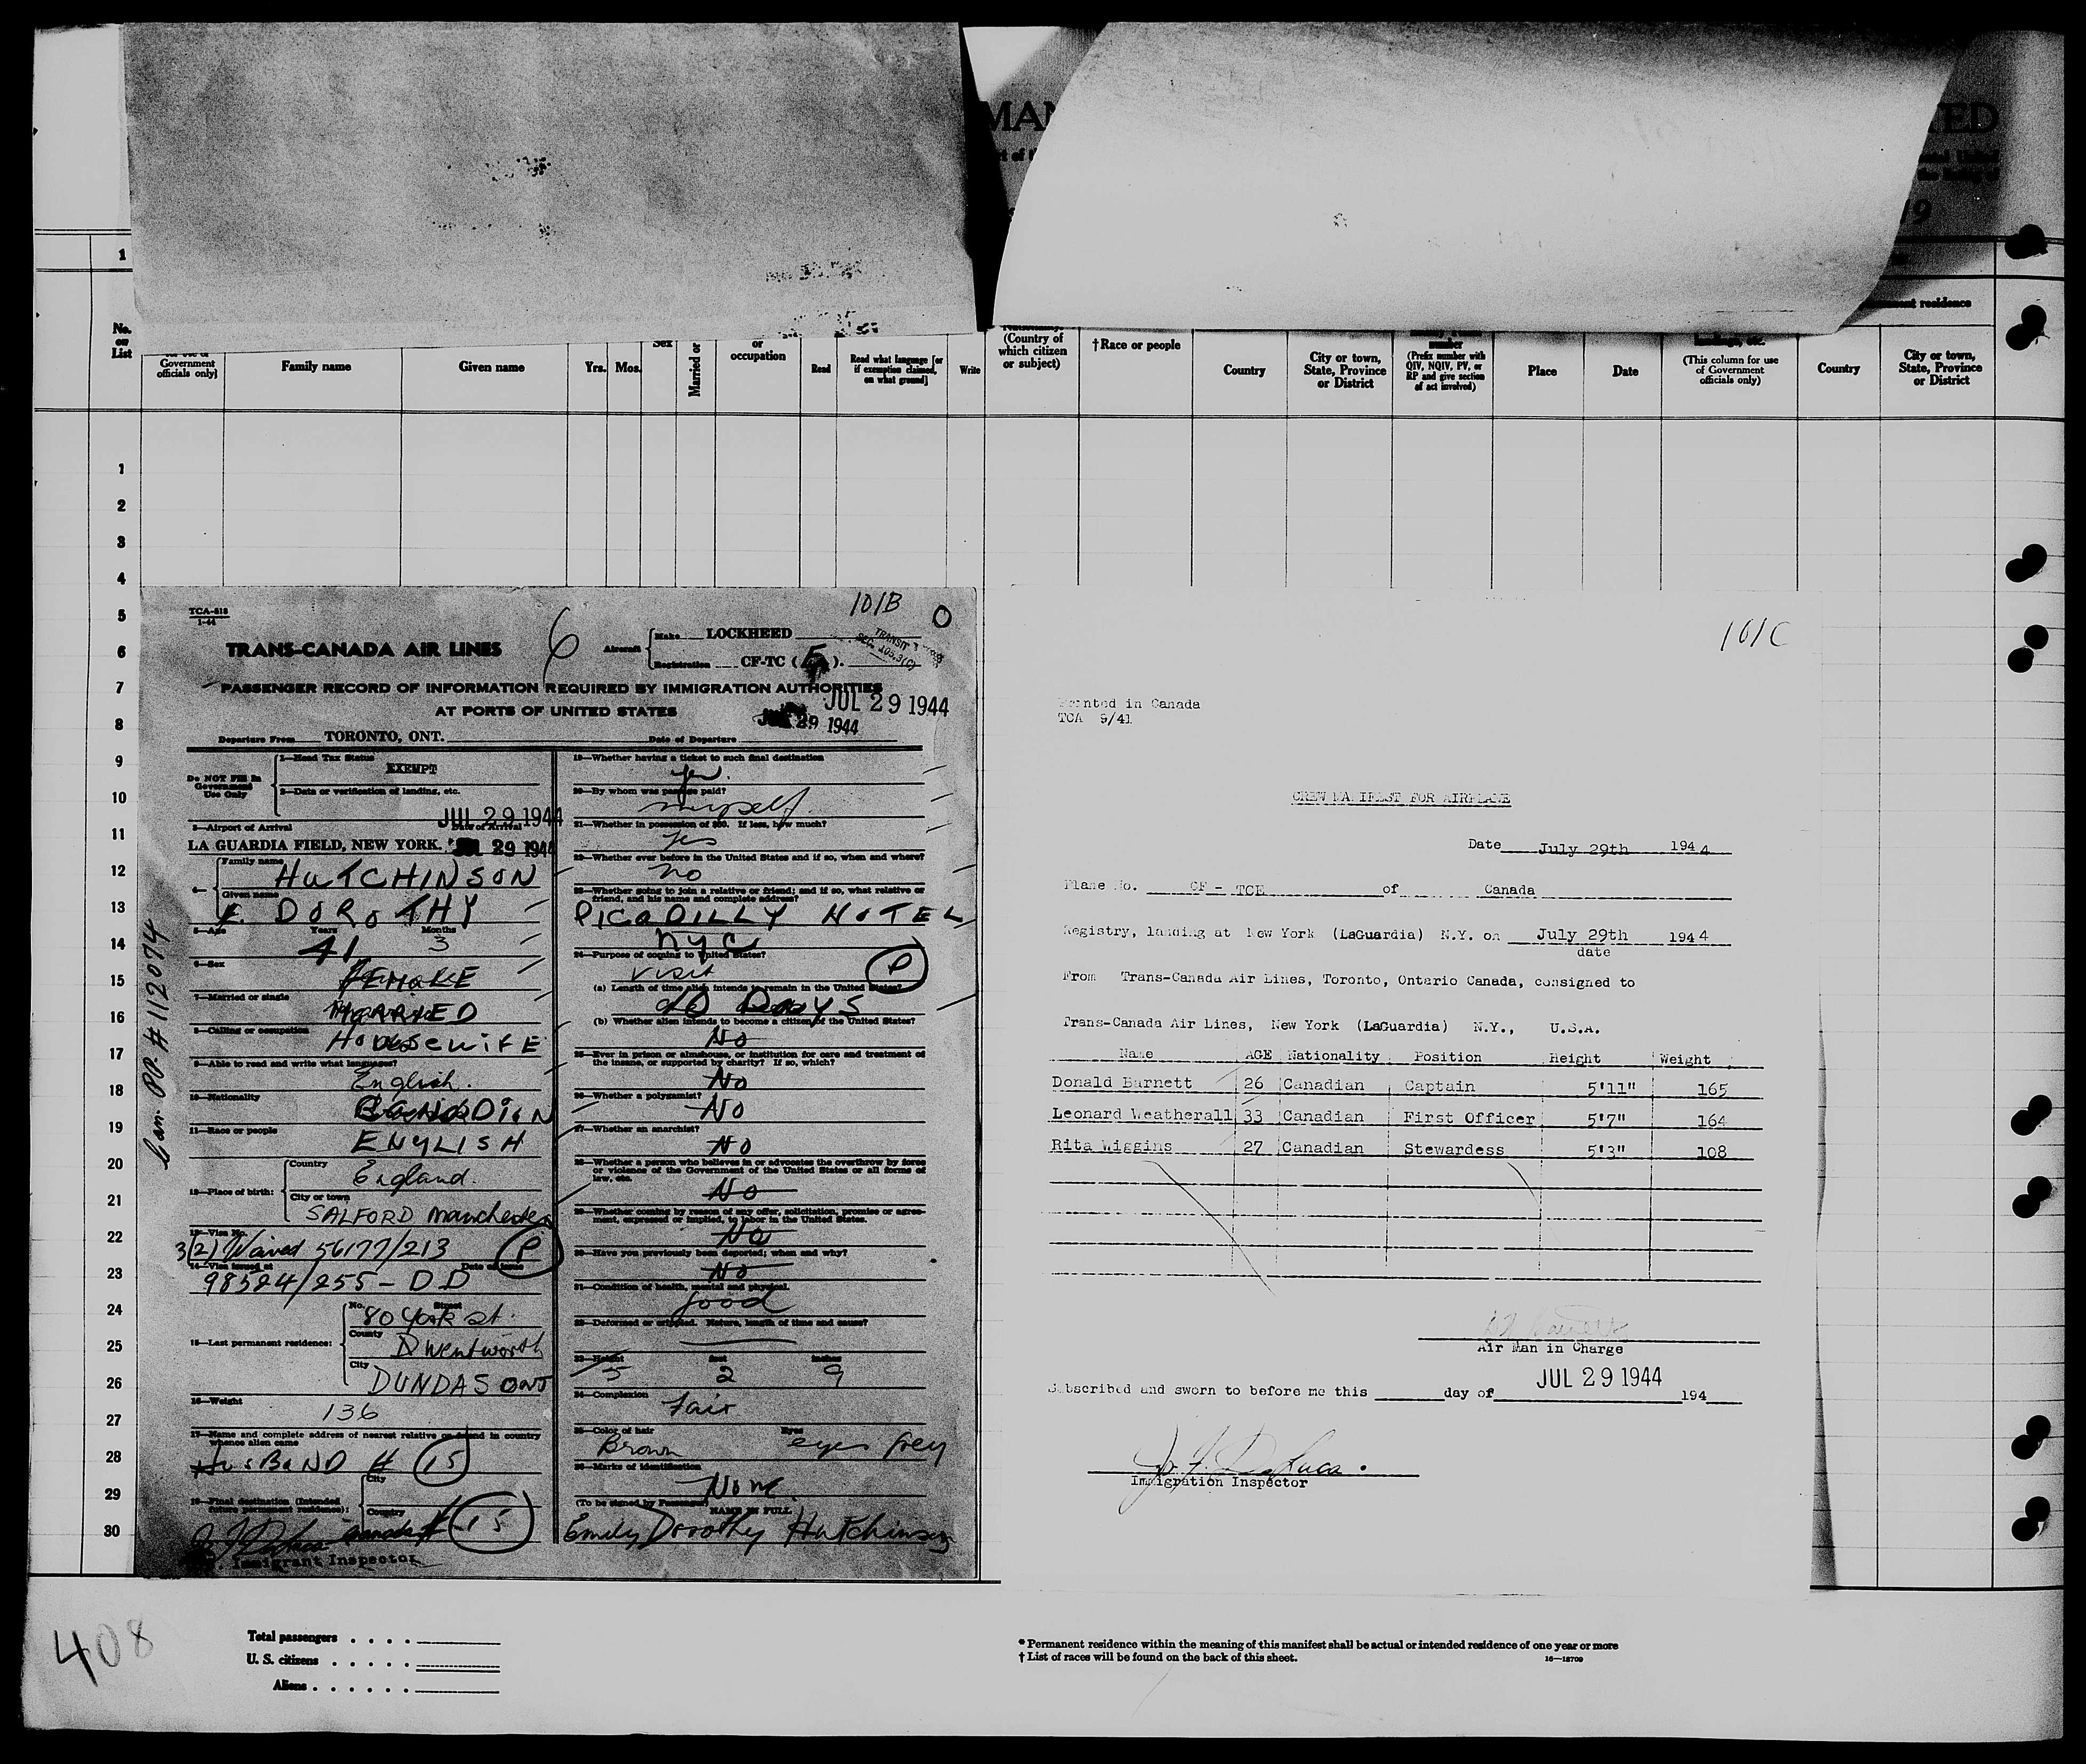 MAN
TED
19
1
No. on List
Government officials only)
Family name
Given name
Yrs.
Mos.
Sex
Married or
or occupation
Read
Read what language [or if exemption claimed, on what ground]
Write
(Country of which citizen or subject)
†Race or people
Country
City or town, State, Province or District
number (Prefix number with QIV, NQIV, PV, or RP and give section of act involved)
Place
Date
(This column for use of Government officials only)
residence
Country
City or town, State, Province or District
1
2
3
4
5
6
7
8
9
10
11
12
13
14
15
16
17
18
19
20
21
22
23
24
25
26
27
28
29
30
TCA-818
1-44
6
101B
TRANS-CANADA AIR LINES
Aircraft
Make LOCKHEED
Registration CF-TC (E).
TRANSIT
SEC. 105.3(C)
PASSENGER RECORD OF INFORMATION REQUIRED BY IMMIGRATION AUTHORITIES
AT PORTS OF UNITED STATES
JUL 29 1944
JUL 29 1944
Departure From TORONTO, ONT. Date of Departure
Do NOT Fill In Government Use Only
1—Head Tax Status
EXEMPT
2—Data or verification of landing, etc.
JUL 29 1944
3—Airport of Arrival Date of Arrival
LA GUARDIA FIELD, NEW YORK. JUL 29 1944
4—
Family name
HUTCHINSON
Given name
E. DOROTHY
5—Age Years Months
41 3
6—Sex
FEMALE
7—Married or single
MARRIED
8—Calling or occupation
HOUSEWIFE
9—Able to read and write what languages?
English.
10—Nationality
CANADIAN
11—Race or people
ENGLISH
12—Place of birth:
Country
England.
City or town
SALFORD Manchester
13—Visa No.
3(2) Waived 56177/213 P
14—Visa issued at Date of issue
98524/255-DD
15—Last permanent residence:
No. Street
80 York st.
County
Wentworth
City
DUNDAS ONT
16—Weight
136
17—Name and complete address of nearest relative or friend in country whence alien came
HUSBAND # 15
18—Final destination (Intended future permanent residence):
City
Country
Canada # 15
Immigrant Inspector
Can. PP. # 112074
19—Whether having a ticket to such final destination
yes.
20—By whom was passage paid?
myself
21—Whether in possession of $50. If less, how much?
Yes
22—Whether ever before in the United States and if so, when and where?
NO
23—Whether going to join a relative or friend; and if so, what relative or friend, and his name and complete address?
PICADILLY HOTEL
NYC
24—Purpose of coming to United States?
Visit P
(a) Length of time alien intends to remain in the United States?
10 DAYS
(b) Whether alien intends to become a citizen of the United States?
No
25—Ever in prison or almshouse, or institution for care and treatment of the insane, or supported by charity? If so, which?
No
26—Whether a polygamist?
No
27—Whether an anarchist?
No
28—Whether a person who believes in or advocates the overthrow by force or violence of the Government of the United States or all forms of law, etc.
No
29—Whether coming by reason of any offer, solicitation, promise or agreement, expressed or implied, to labor in the United States.
No
30—Have you previously been deported; when and why?
No
31—Condition of health, mental and physical.
good
32—Deformed or crippled. Nature, length of time and cause?
33—Height feet inches
5 2 9
34—Complexion
Fair
35—Color of hair Eyes
Brown eyes Grey
36—Marks of identification
None.
(To be signed by Passenger) NAME IN FULL
Emily Dorothy Hutchinson
101C
Printed in Canada
TCA 9/41
CREW MANIFEST FOR AIRPLANE
Date July 29th 1944
Plane No. CF - TCE of Canada
Registry, landing at New York (LaGuardia) N.Y. on July 29th 1944
date
From Trans-Canada Air Lines, Toronto, Ontario Canada, consigned to
Trans-Canada Air Lines, New York (LaGuardia) N.Y., U.S.A.
Name AGE Nationality Position Height Weight
Donald Barnett 26 Canadian Captain 5'11" 165
Leonard Weatherall 33 Canadian First Officer 5'7" 164
Rita Wiggins 27 Canadian Stewardess 5'3" 108
Air Man in Charge
Subscribed and sworn to before me this day of JUL 29 1944 194
J. F. DeLuca.
Immigration Inspector
408
Total passengers . . . .
U. S. citizens . . . . .
Aliens . . . . . .
* Permanent residence within the meaning of this manifest shall be actual or intended residence of one year or more
† List of races will be found on the back of this sheet.
16—18709